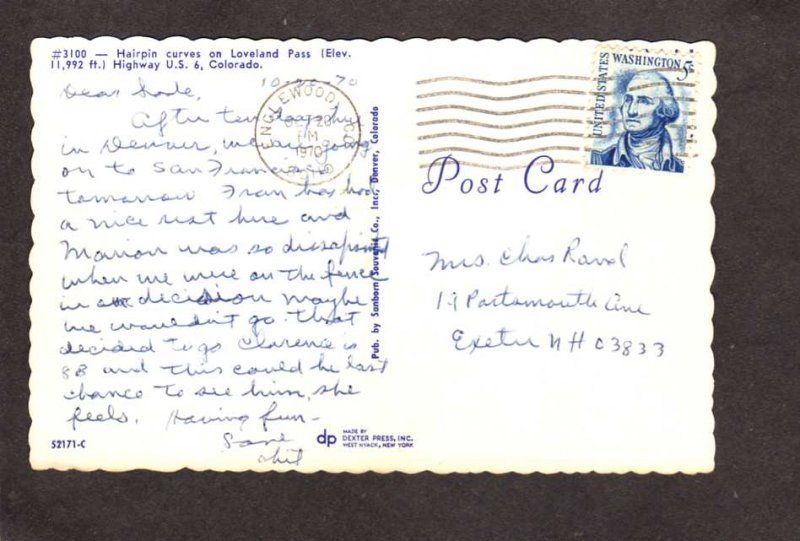 #3100 — Hairpin curves on Loveland Pass (Elev.
11,992 ft.) Highway U.S. 6, Colorado.
10-26-70
Dear
After ten days here
in Denver, we are going
on to San Francisco
tomorrow. Fran has had
a nice rest here and
Marion was so dissapoint
when we were on the fence
in decision maybe
we wouldn't go. That
decided to go Clarence is
88 and this could be last
chance to see him, she
feels. Having fun—
52171-C
ENGLEWOOD, CO
OCT 26
PM
1970
Pub. by Sanborn Souvenir Co., Inc., Denver, Colorado
dp MADE BY
DEXTER PRESS, INC.
WEST NYACK, NEW YORK
UNITED STATES
WASHINGTON 5¢
Post Card
Mrs. Chas Rand
19 Portsmouth Ave
Exeter NH 03833